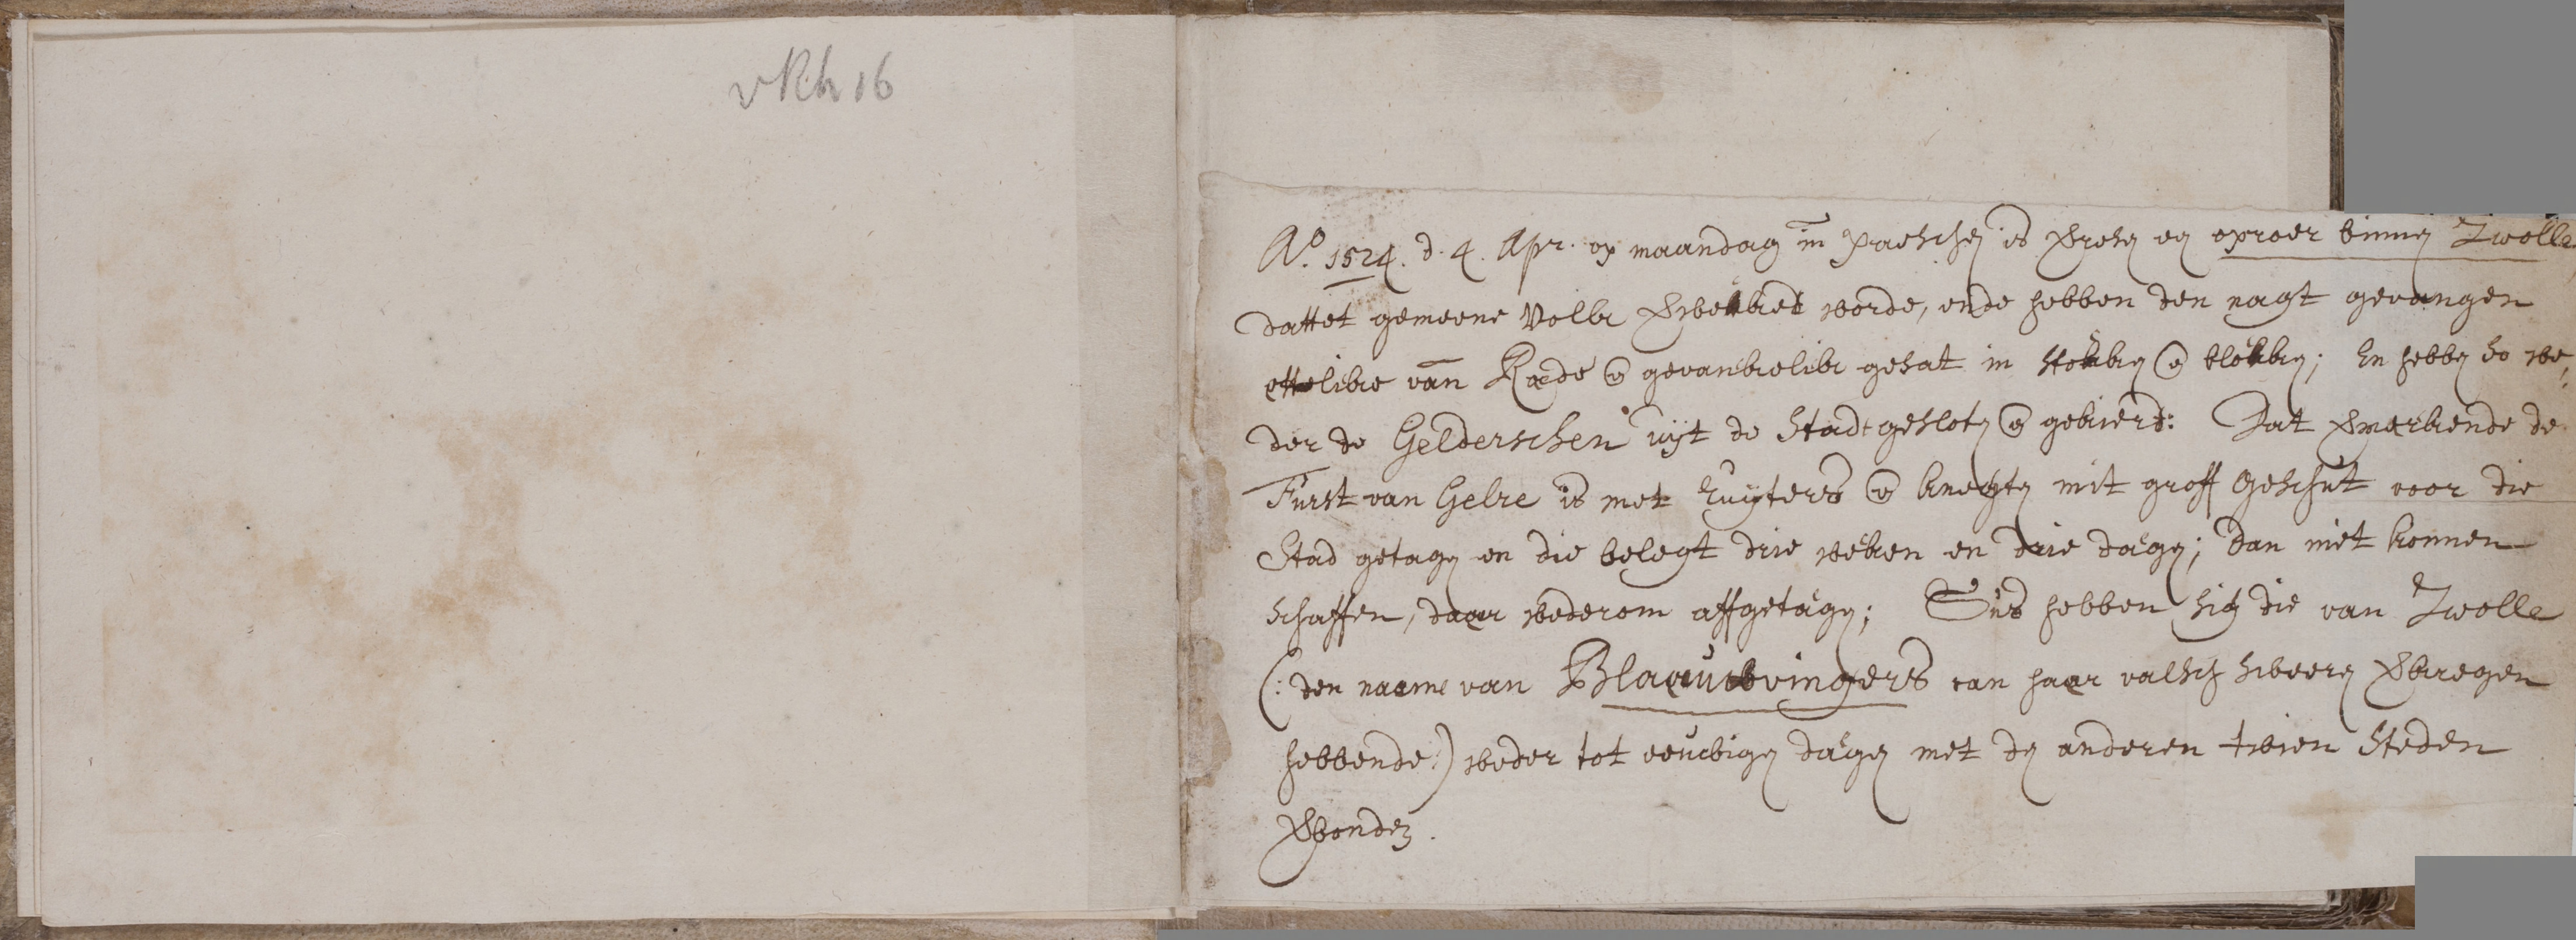 vRh 16
Ao. 1524. d. 4. Apr. op maandag in paeschen is verresen een oproer binnen Zwolle,
dattet gemeene Volk verwekket worde, ende hebben den nagt gevangen
ettelike van Rade en gevankelik gesat in stokken en blokken; En hebben so we,
der de Gelderschen uijt de Stad gesloten en gekeerd: Dat vermerkende de
Furst van Gelre is met Ruijters en knegten mit groff geschut voor die
Stad getagen en die belegt drie weken en drie dagen; Dan niet konnen
schaffen, daar wederom affgetagen; Dus hebben sich die van Zwolle
(: den naame van Blaauwvingers van haar valsch sweeren verkregen
hebbende:) weder tot eeuwigen dagen met den anderen twien Steden
verbonden.